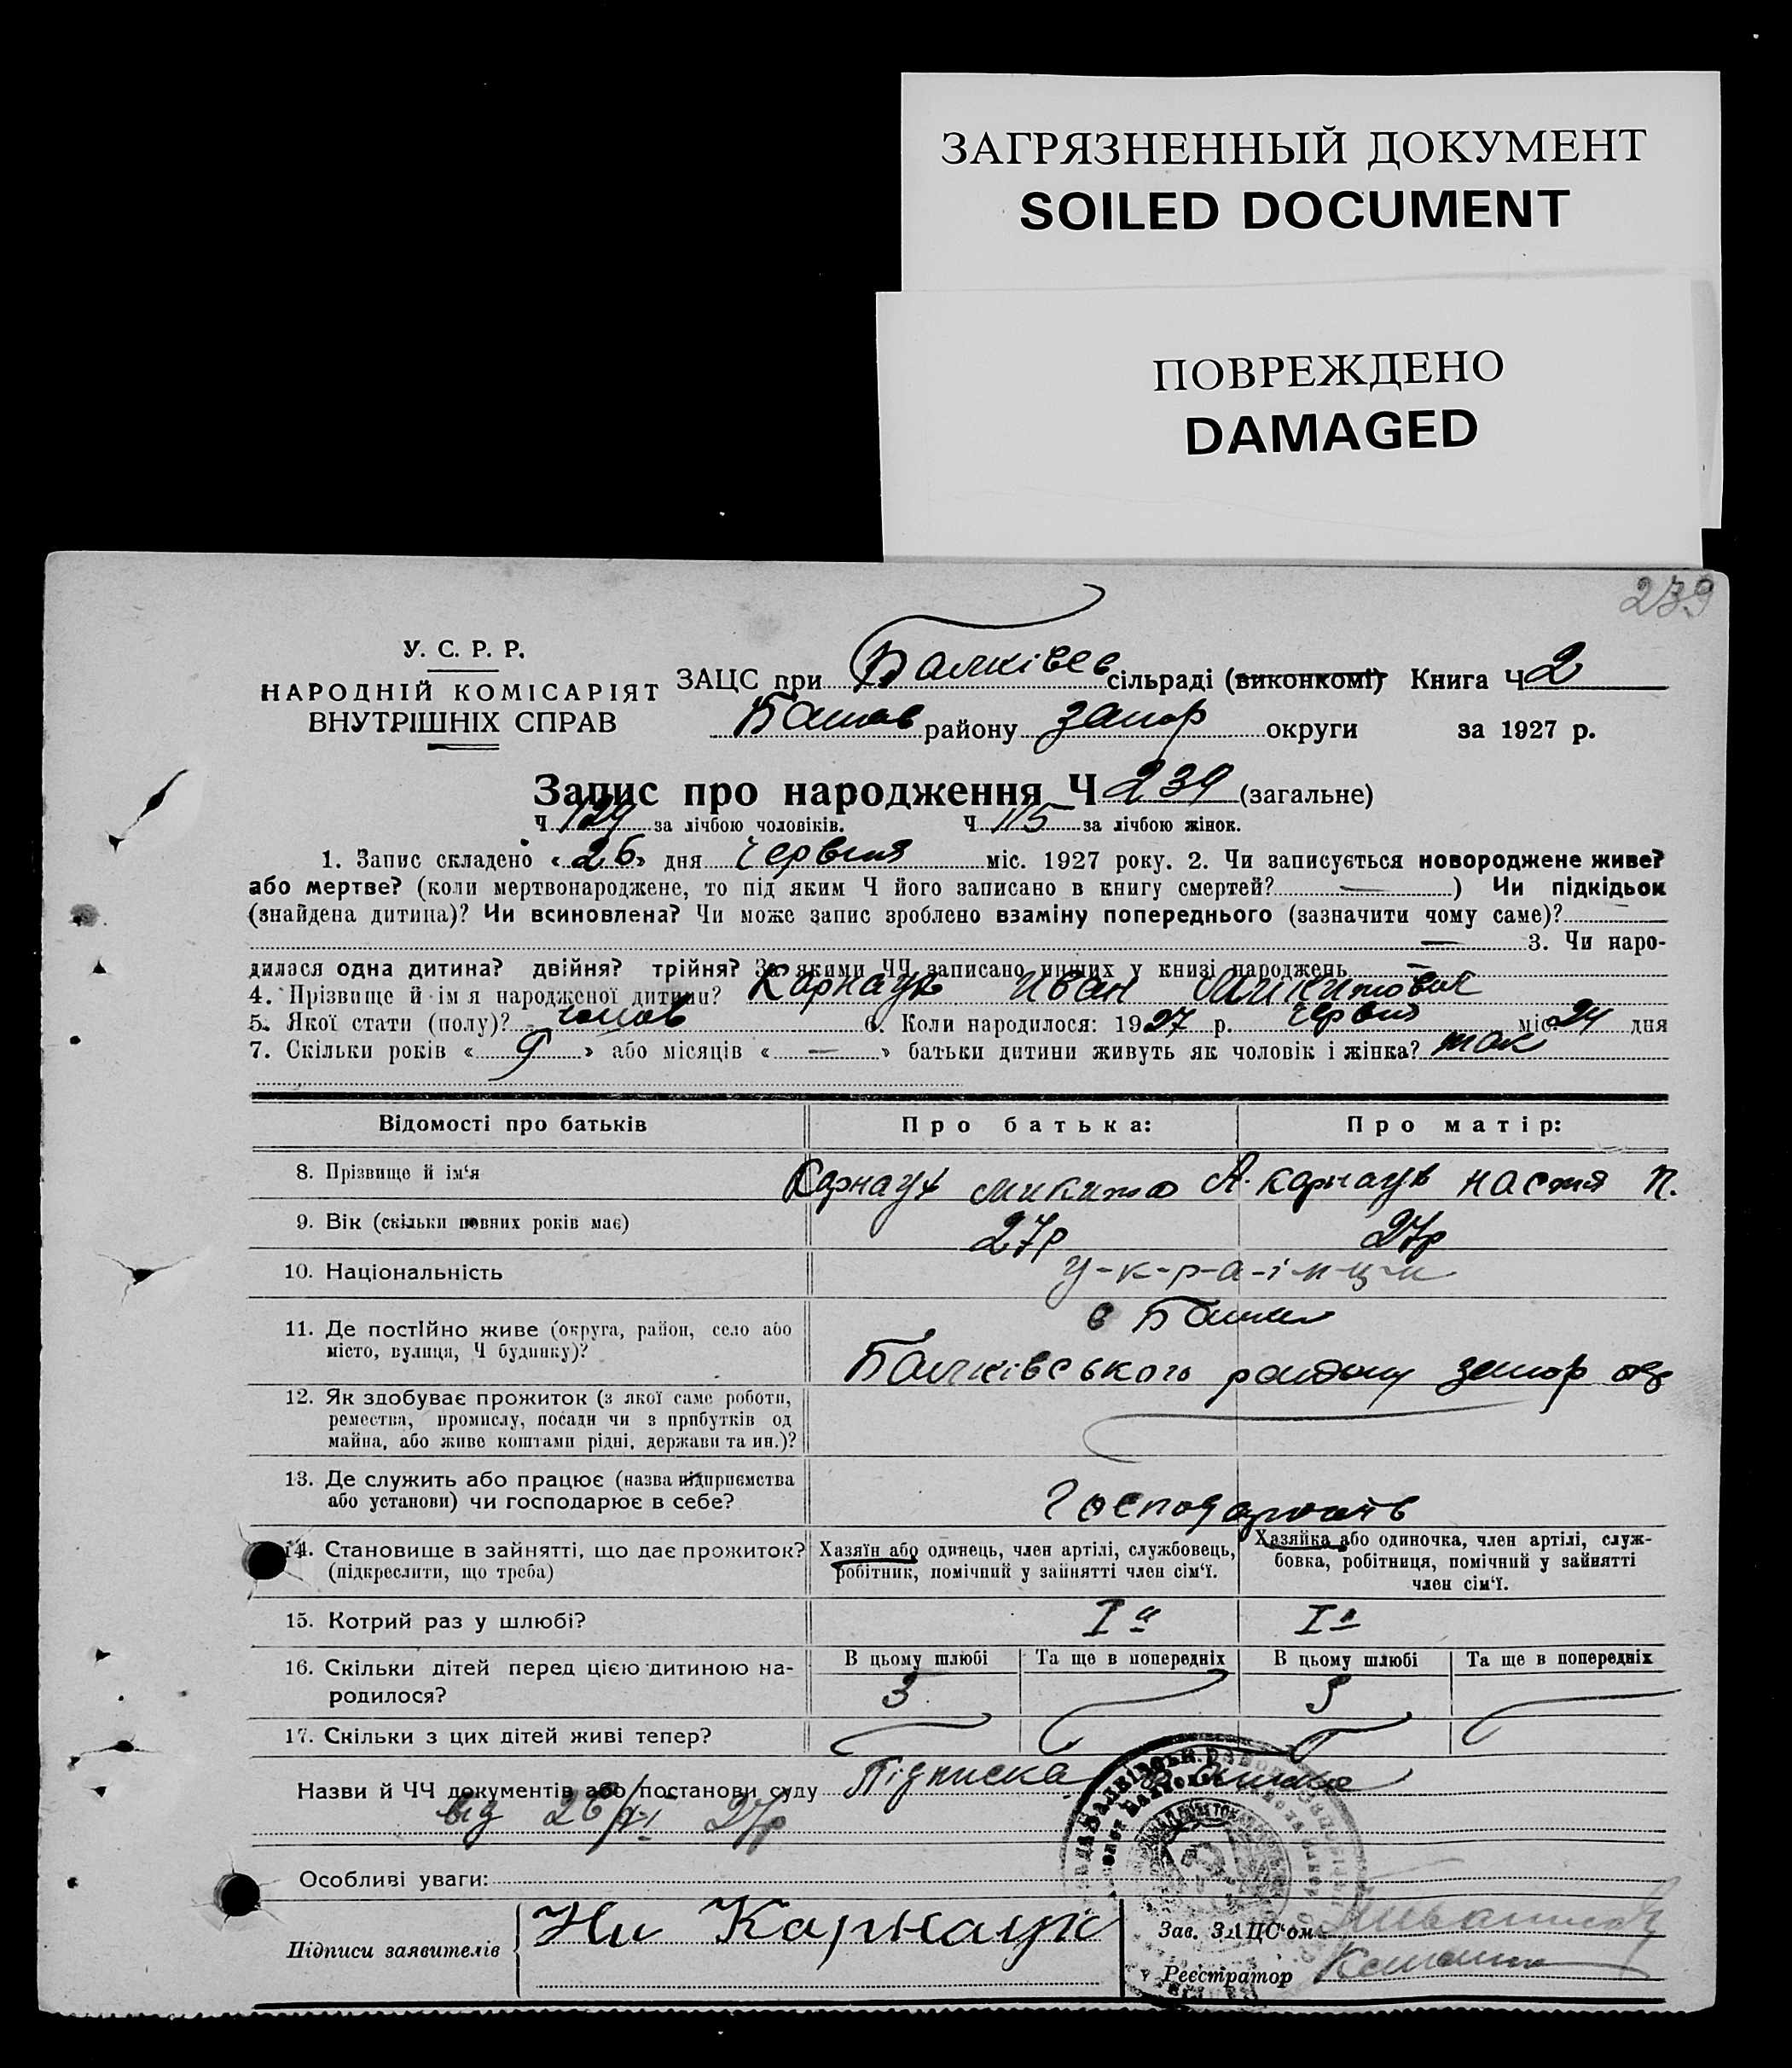 ЗАГРЯЗНЕННЫЙ ДОКУМЕНТ
SOILED DOCUMENT
ПОВРЕЖДЕНО
DAMAGED
239
У. С. Р. Р.
НАРОДНІЙ КОМІСАРІЯТ
ВНУТРІШНІХ СПРАВ
ЗАЦС при Балківсь сільраді (виконкомі) Книга Ч 2
району Запор округи за 1927 р.
Запис про народження Ч 239 (загальне)
Ч 124 за лічбою чоловіків. Ч 115 за лічбою жінок.
1. Запис складено « 26 » дня Червня міс. 1927 року. 2. Чи записується новороджене живе?
або мертве? (коли мертвонароджене, то під яким Ч його записано в книгу смертей? — ) Чи підкідьок
(знайдена дитина)? Чи всиновлена? Чи може запис зроблено взаміну попереднього (зазначити чому саме)? —
— 3. Чи наро-
дилася одна дитина? двійня? трійня? За якими ЧЧ записано инших у книзі народжень —
4. Прізвище й ім я народженої дитини? Карнаух Иван Микитович
5. Якої стати (полу)? чолов 6. Коли народилося: 1927 р. Червня міс. 24 дня
7. Скільки років « 9 » або місяців « — » батьки дитини живуть як чоловік і жінка? так
Відомості про батьків Про батька: Про матір:
8. Прізвище й ім'я Карнаух Микита А. Карнаух Настя П.
9. Вік (скільки повних років має) 27р 27р
10. Національність У-к-р-а-ї-н-ц-и
11. Де постійно живе (округа, район, село або
місто, вулиця, Ч будинку)? Балківського району Запор окр
12. Як здобуває прожиток (з якої саме роботи,
ремества, промислу, посади чи з прибутків од
майна, або живе коштами рідні, держави та ин.)?
13. Де служить або працює (назва підприємства
або установи) чи господарює в себе? Господарюють
14. Становище в зайнятті, що дає прожиток? (підкреслити, що треба)
Хазяїн або одинець, член артілі, службовець,
робітник, помічний у зайнятті член сім'ї.
Хазяйка або одиночка, член артілі, служ-
бовка, робітниця, помічний у зайнятті
член сім'ї.
15. Котрий раз у шлюбі? I й I й
16. Скільки дітей перед цією дитиною на-
родилося?
В цьому шлюбі Та ще в попередніх В цьому шлюбі Та ще в попередніх
3 3
17. Скільки з цих дітей живі тепер?
Назви й ЧЧ документів або постанови суду Підписка
від 26/VI 27р
Особливі уваги:
Підписи заявителів Ни Карнаух
Зав. ЗАЦС'ом
Реєстратор